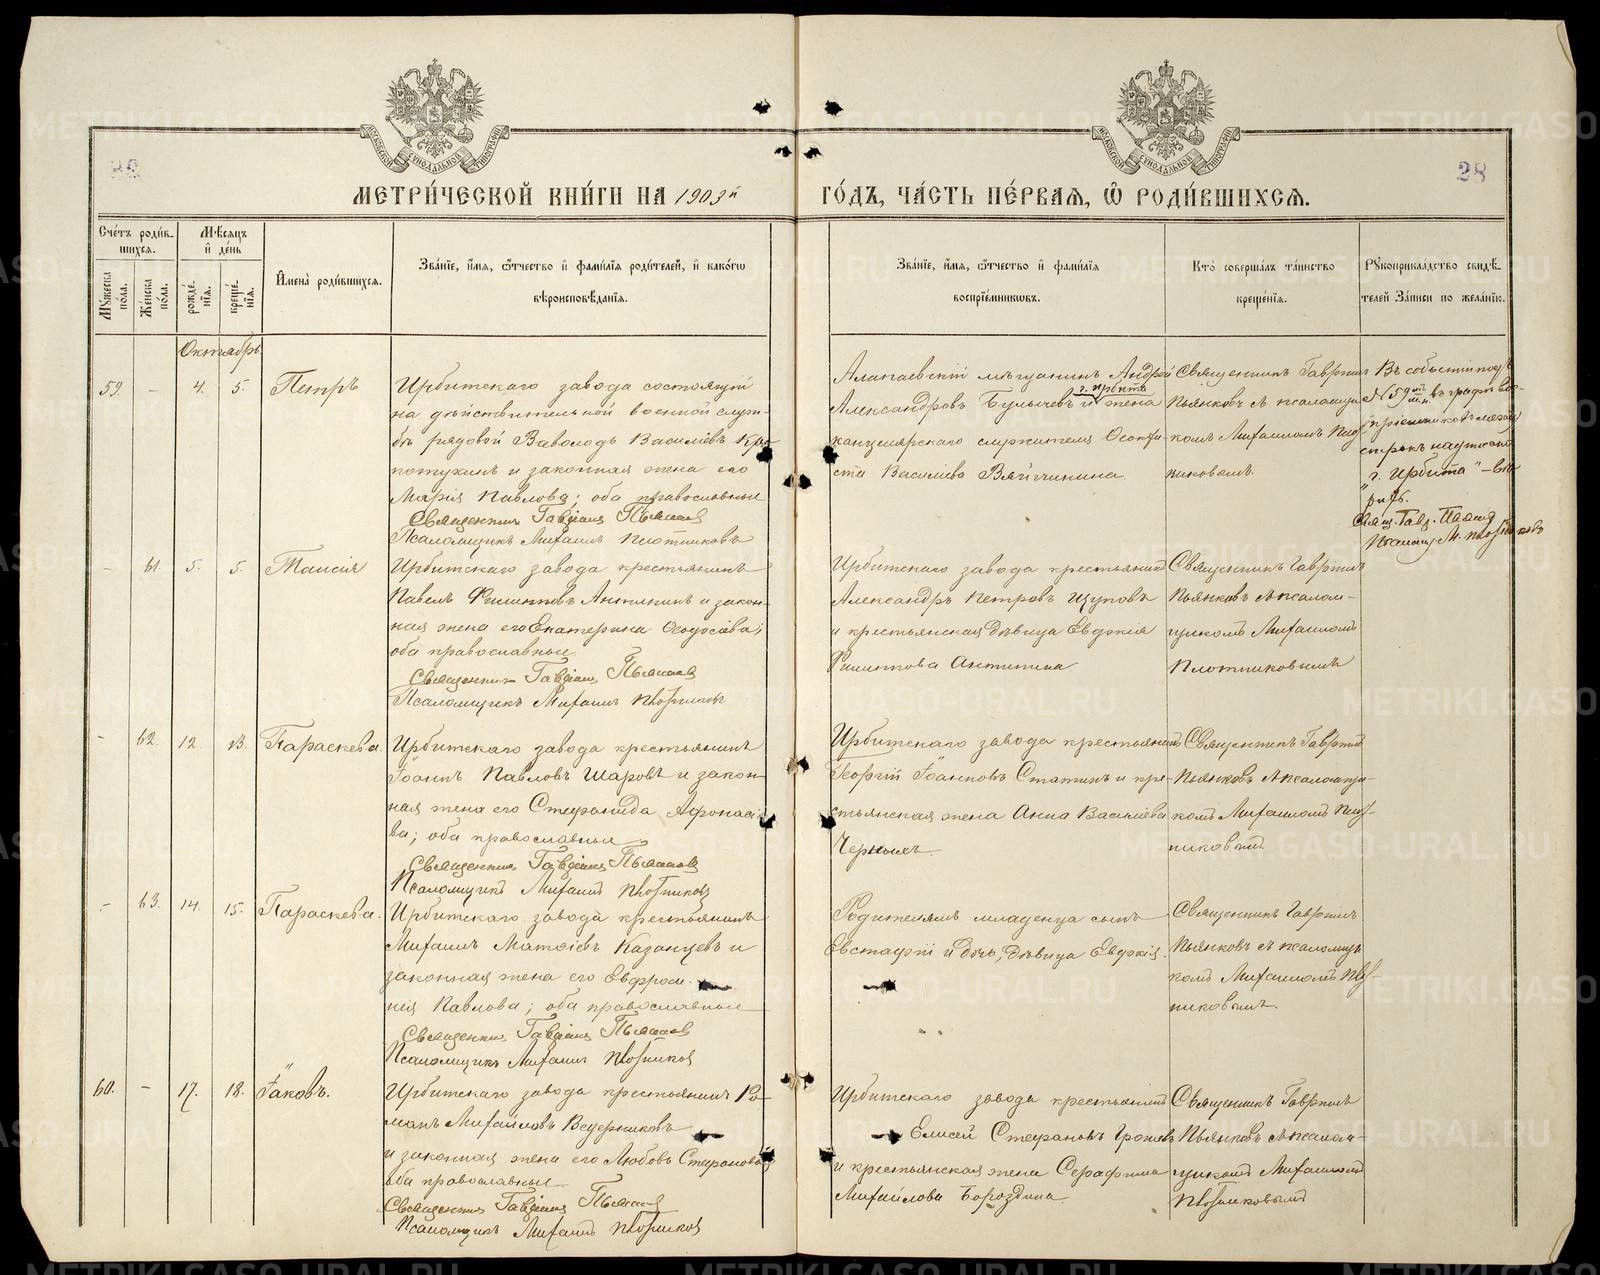 28
МЕТРИ́ЧЕСКОЙ КНИ́ГИ НА 1903й ГО́ДЪ, ЧА́СТЬ ПЕ́РВАЯ, Ѡ҆ РОДИ́ВШИХСЯ.
МОСКОВСКОЙ СѴНОДАЛЬНОЙ ТИПОГРАФІИ
МОСКОВСКОЙ СѴНОДАЛЬНОЙ ТИПОГРАФІИ
Сче́тъ роди́вшихся.
Му́жеска по́ла.
Же́нска по́ла.
Мѣ́сяцъ и҆ де́нь
рожде́нїя.
креще́нїя.
И҆мена̀ роди́вшихся.
Зва́нїе, и҆́мя, ѻ҆́тчество и҆ фами́лїя роди́телей, и҆ како́гѡ
вѣроисповѣ́данїя.
Зва́нїе, и҆́мя, ѻ҆́тчество и҆ фами́лїя
воспрїе́мникѡвъ.
Кто̀ соверша́лъ та́инство
креще́нїя.
Рꙋкоприкла́дство свидѣ́телей за́писи по жела́нїю.
Октябрь.
59. – 4. 5. Петръ
Ирбитскаго завода состоящій
на дѣйствительной военной служ-
бѣ рядовой Васильевъ
и законная жена его
Марія Павлова; оба православные
Священникъ Гавріилъ Пьянковъ
Псаломщикъ Михаилъ Плотниковъ
Алапаевскій мѣщанинъ Андрей
г. Ирбита
Александровъ Булычевъ и жена
канцелярскаго служителя
Васильева
Священникъ Гавріилъ
Пьянковъ с псаломщи-
комъ Михаиломъ Плот-
никовымъ.
№ 59 м.п. въ графѣ вос-
пріемниковъ между
строкъ
"г. Ирбита" – вѣ-
рить.
Свящ. Гавр. Пьянков
Псаломщ. М. Плотниковъ
– 61. 5. 5. Таисія
Ирбитскаго завода крестьянинъ
Павелъ Филиповъ Антипинъ и закон-
ная жена его Екатерина Ѳеодосіева;
оба православные
Священникъ Гавріилъ Пьянков
Псаломщикъ Михаилъ Плотников
Ирбитскаго завода крестьянинъ
Александръ Петровъ Щуповъ
и крестьянская дѣвица Евдокія
Филиппова Антипина
Священникъ Гавріилъ
Пьянковъ с псалом-
щикомъ Михаиломъ
Плотниковымъ
– 62. 12. 13. Параскева.
Ирбитскаго завода крестьянинъ
Іоаннъ Павловъ Шаровъ и закон-
ная жена его Стефанида Афонасіе-
ва; оба православные
Священникъ Гавріилъ Пьянков
Псаломщикъ Михаилъ Плотников
Ирбитскаго завода крестьянинъ
Георгій Іоанновъ Статинъ и кре-
стьянская жена Анна Васильева
Черныхъ.
Священникъ Гавріилъ
Пьянковъ с псаломщи-
комъ Михаиломъ Плот-
никовымъ
– 63. 14. 15. Параскева.
Ирбитскаго завода крестьянинъ
Михаилъ Матвіевъ Казанцевъ и
законная жена его Евфроси-
нія Павлова; оба православные
Священникъ Гавріилъ Пьянков
Псаломщикъ Михаилъ Плотников
Родителямъ младенца сынъ
Евстафій и дочь, дѣвица Евдокія.
Священникъ Гавріилъ
Пьянковъ с псаломщи-
комъ Михаиломъ Плот-
никовымъ.
60. – 17. 18. Іаковъ.
Ирбитскаго завода крестьянинъ Ро-
манъ Михайловъ Ведерниковъ
и законная жена его Любовь Стефанова;
оба православные
Священникъ Гавріилъ Пьянков
Псаломщикъ Михаилъ Плотников
Ирбитскаго завода крестьянинъ
Елисей Стефановъ
и крестьянская жена Серафима
Михайлова Бороздина
Священникъ Гавріилъ
Пьянковъ с псалом-
щикомъ Михаиломъ
Плотниковымъ
METRIKI.GASO-URAL.RU